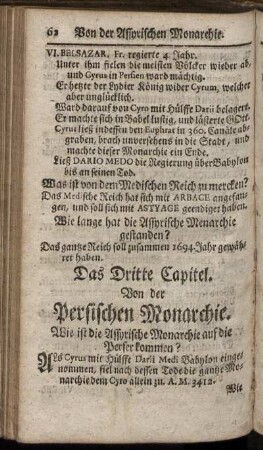 62 Von der Assyrischen Monarchie.
VI. BELSAZAR, Er. regierte 4. Jahr.
Unter ihm fielen die meisten Völcker wieder ab,
und Cyrus in Persien ward mächtig.
Er hetzte der Lydier König wider Cyrum, welcher
aber unglücklich.
Ward darauf von Cyro mit Hülffe Darii belagert.
Er machte sich in Babel lustig, und lästerte GOtt.
Cyrus ließ indessen den Euphrat in 360. Canäle abs
graben, brach unversehens in die Stadt, und
machte dieser Monarchie ein Ende.
Ließ DARIO MEDO die Regierung über Babylon
bis an seinen Tod.
Was ist von dem Medischen Reich zu mercken?
Das Medische Reich hat sich mit ARBACE angefan-
gen, und soll sich mit ASTYAGE geendiget haben.
Wie lange hat die Assyrische Monarchie
gestanden?
Das gantze Reich soll zusammen 1694. Jahr gewäh-
ret haben.
Das Dritte Capitel.
Von der
Persischen Monarchie.
Wie ist die Assyrische Monarchie auf die
Perser kommen?
Als Cyrus mit Hülffe Darii Medi Babylon einge-
nommen, fiel nach dessen Tode die gantze Mo-
narchie dem Cyro allein zu. A. M. 3412.
Wie